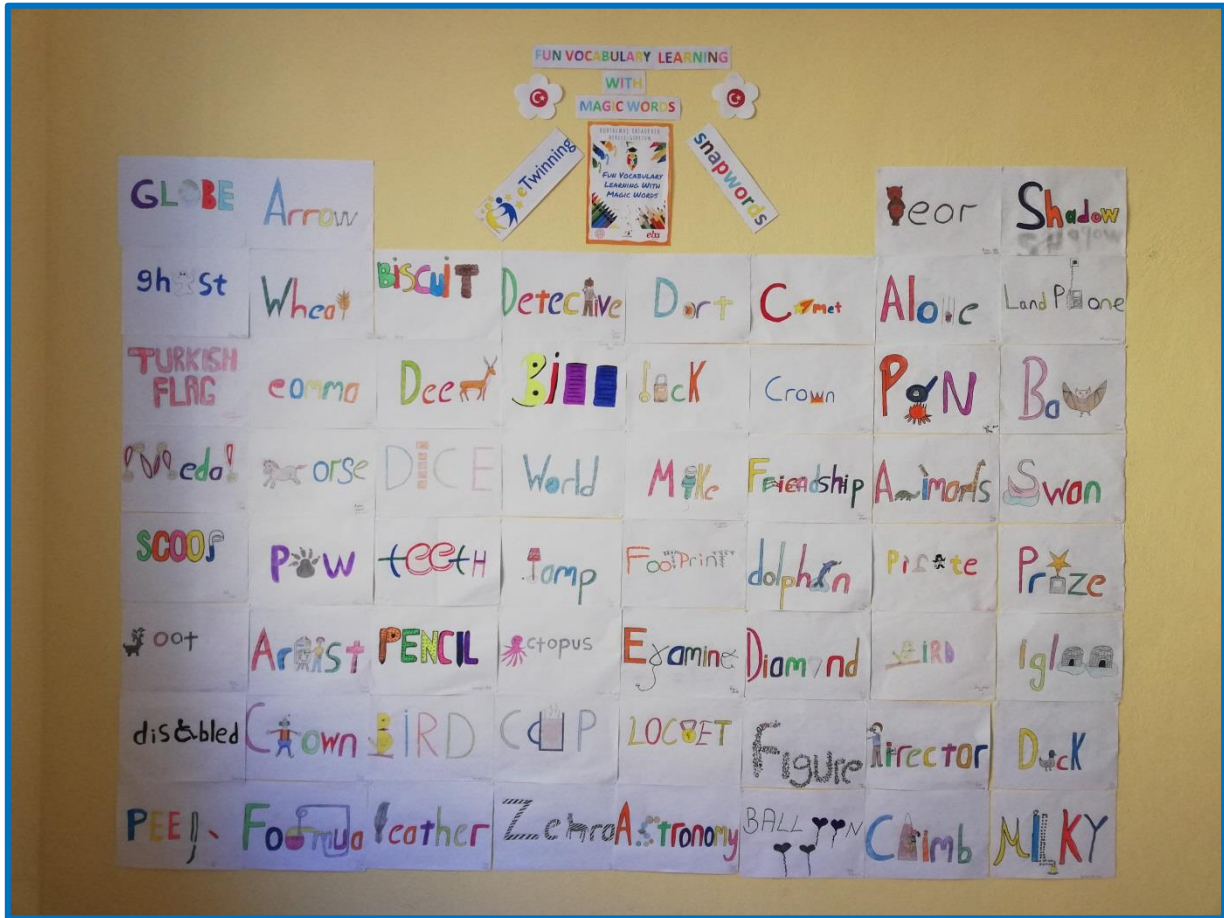 FUN VOCABULARY LEARNING
WITH
MAGIC WORDS
eTwinning
FUN VOCABULARY
LEARNING WITH
MAGIC WORDS
eba
snapwords
GLOBE Arrow eor Shadow
ghst Wheat BiscuiT Detective Dart Comet Alone Land Phone
TURKISH
FLAG
comma Deer Bill lock Crown PaN Bat
Medal orse DiCE World Mike Friendship Animals Swan
SCOOP Paw teetH lamp FootPrint dolphin Pirate Prize
oot Artist PENCIL ctopus Examine Diamond BIRD Igloo
disabled Clown BIRD CUP LOCKET Figure Director Duck
PEEL Formula Feather Zebra Astronomy BALLOON Climb MiLKY